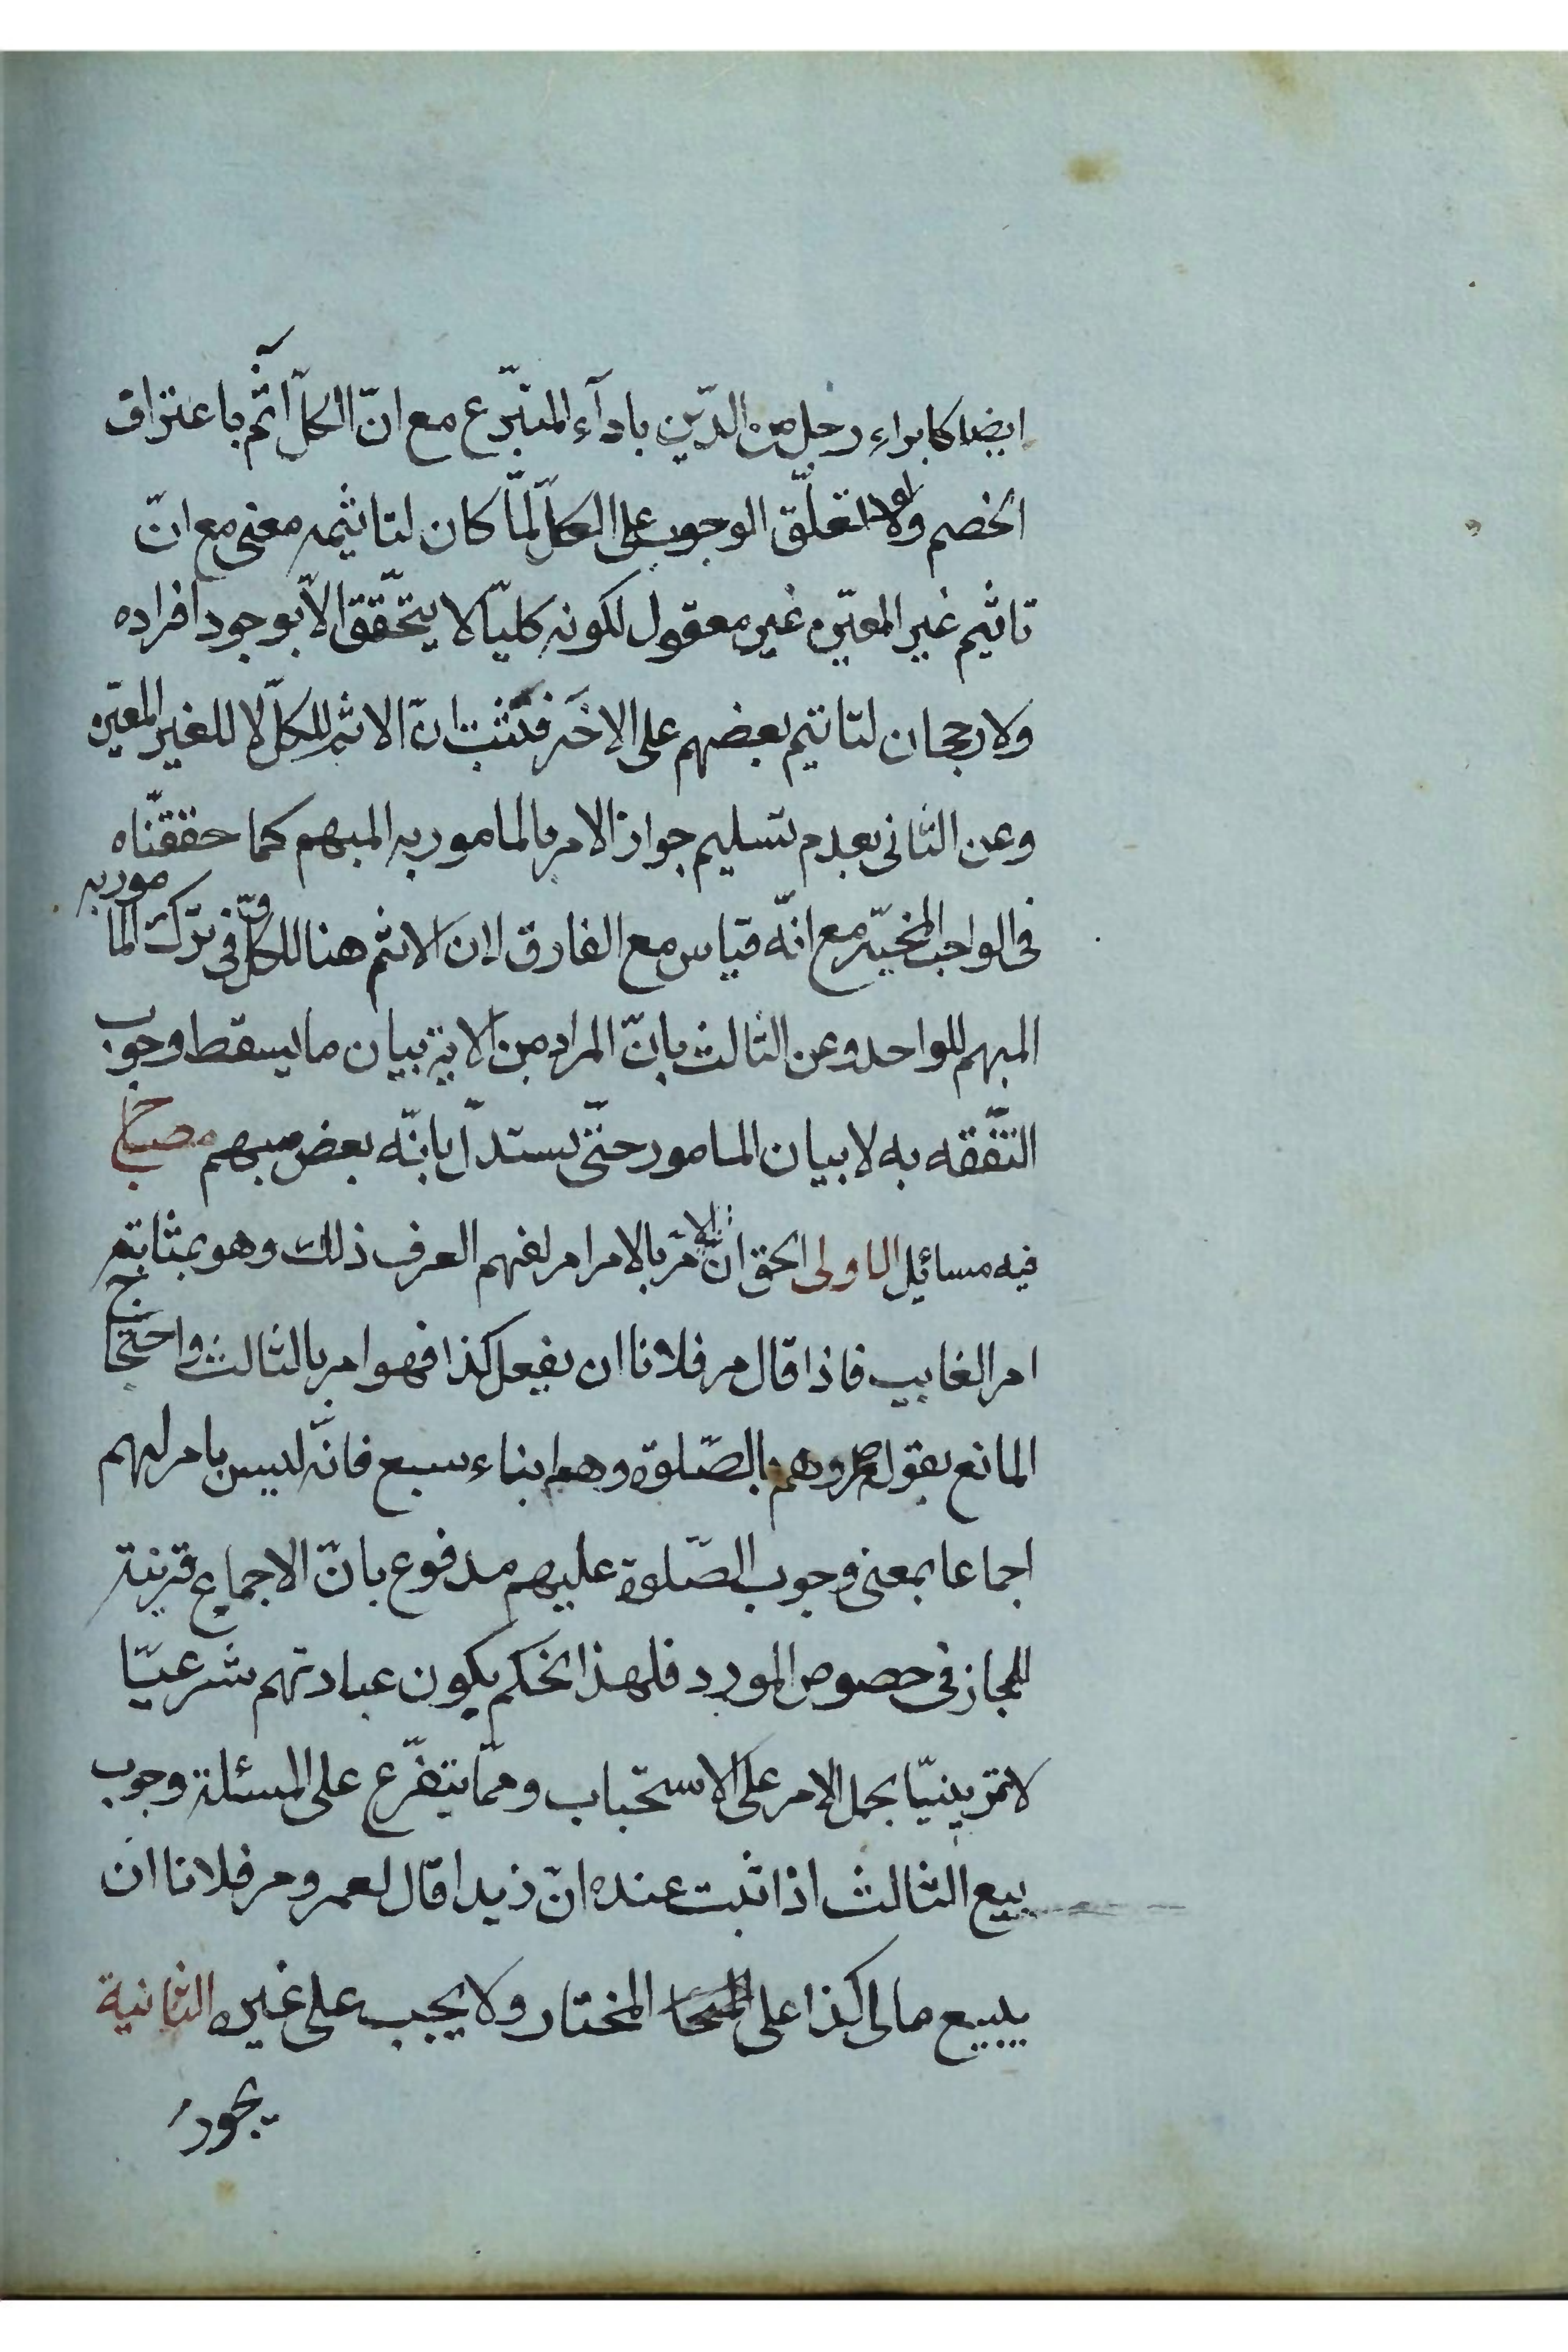 ايضا كابراء رجل من الدّين باداۤء المتبّرع مع انّ الكلّ اثم باعتراف
الخصم ولولا تعلّق الوجوب على الكلّ لمّا كان لتاثيمه معنى مع انّ
تاثيم غير المعيّن غير معقول لكونه كليّا لا يتحّقق الاّ بوجود افراده
ولا رجحان لتاثيم بعضهم على الاخر فثبت انّ الاثم للكلّ لا للغير المعيّن
وعن الثانى بعدم تسليم جواز الامر بالمامور به المبهم كما حققّناه
فى الواجب المخيّر مع انّه قياس مع الفارق لان الاثم هنا للكلّ وفى ترك المامور به
المبهم للواحد وعن الثالث بانّ المراد من الاية بيان ما يسقط وجوب
التّفقه به لا بيان المامور حتّى يستدّل بانّه بعض مبهم مصباح
فيه مسائل الاولى الحق انّ الامر بالامر امر لفهم العرف ذلك وهو بمثابة
امر الغايب فاذا قال مر فلانا ان يفعل كذا فهو امر بالثالث واحتجاج
المانع بقوله ص مروهم بالصّلوة وهم ابناء سبع فانّه ليس بامر لهم
اجماعا بمعنى وجوب الصّلوة عليهم مدفوع بانّ الاجماع قرينة
للمجاز فى خصوص المورد فلهذا نحكم بكون عبادتهم شرعيّا
لا تمرينيّا بحمل الامر على الاستحباب وممّا يتفّرع على المسئلة وجوب
بيع الثالث اذا ثبت عنده انّ زيدا قال لعمرو مر فلانا ان
يبيع مالى كذا على المختار ولا يجب على غيره الثانية
يجوز